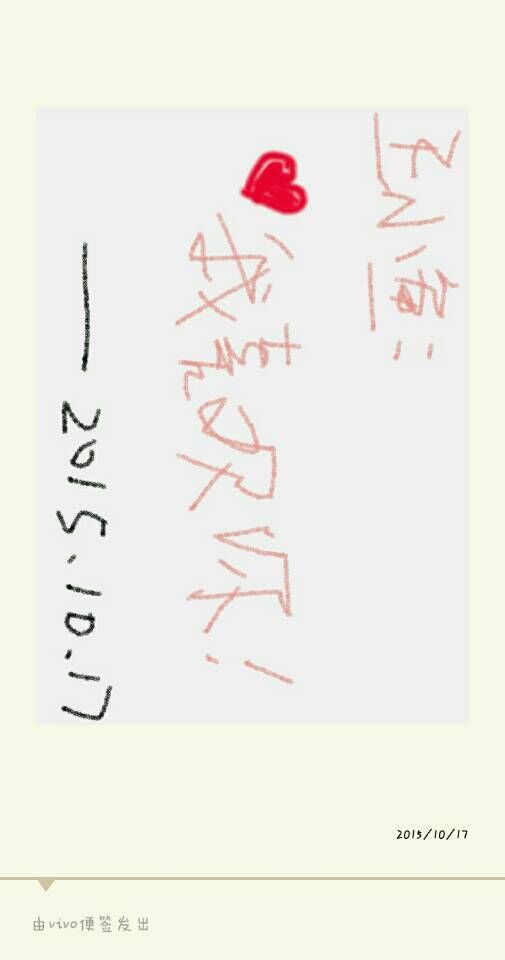 我喜欢你!
——2015.10.17
2015/10/17
由vivo便签发出